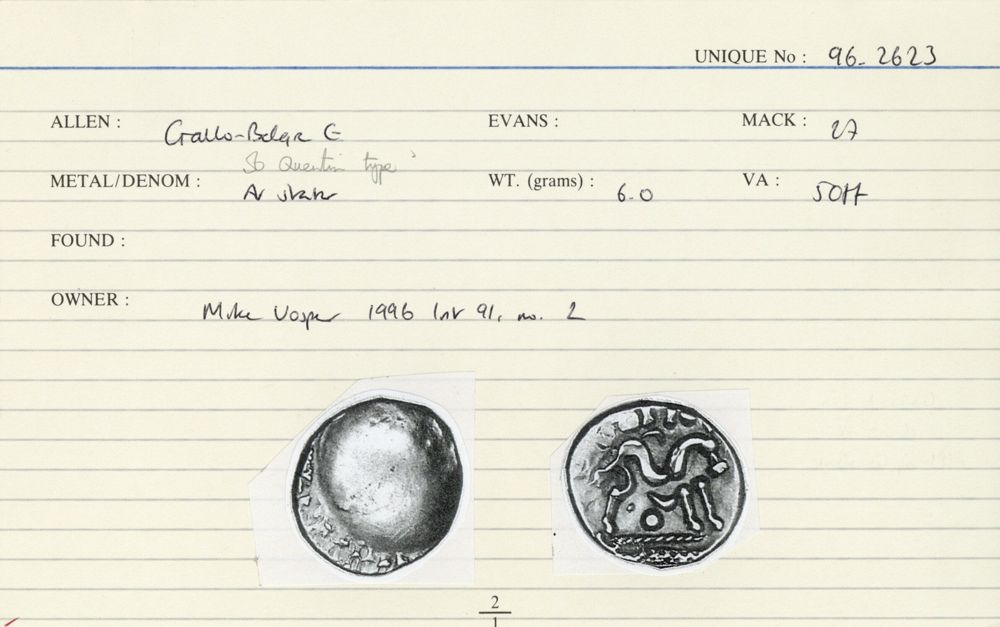 UNIQUE No : 96.2623
ALLEN : Gallo-Belgic E EVANS : MACK : 27
St Quentin type'
METAL/DENOM : AV stater WT. (grams) : 6.0 VA :
FOUND :
OWNER : Mike Vosper 1996 list 91, no. 2
2
1